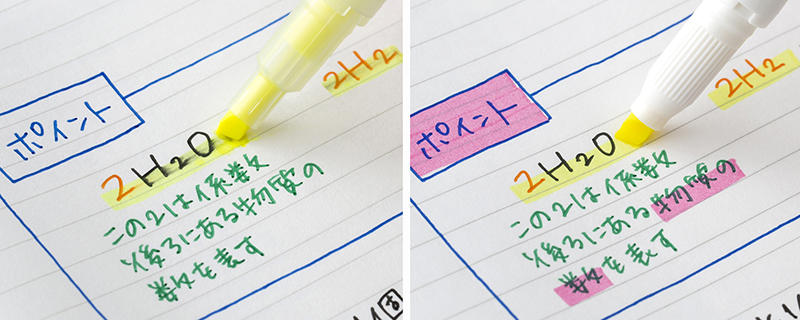 2H2
ポイント
2H2O
この2は係数
後ろにある物質の
数を表す
2H2
ポイント
2H2O
この2は係数
後ろにある物質の
数を表す